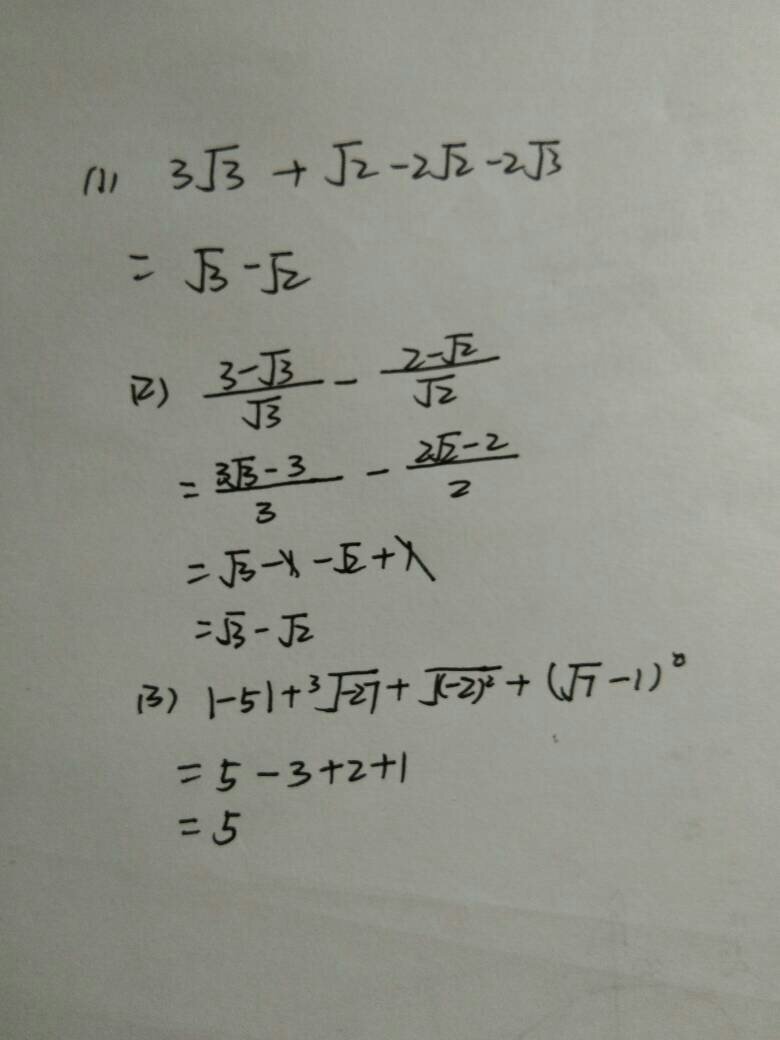 (1) 3√3 + √2 - 2√2 - 2√3
= √3 - √2
(2) (3-√3)/√3 - (2-√2)/√2
= (3√3-3)/3 - (2√2-2)/2
= √3 - 1 - √2 + 1
= √3 - √2
(3) |-5| + ³√-27 + √(-2)² + (√7 - 1)⁰
= 5 - 3 + 2 + 1
= 5